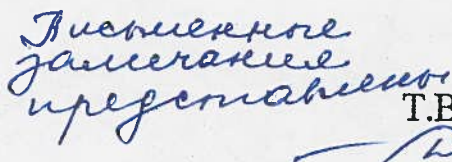 Письменные
замечания
представлены
Т.В